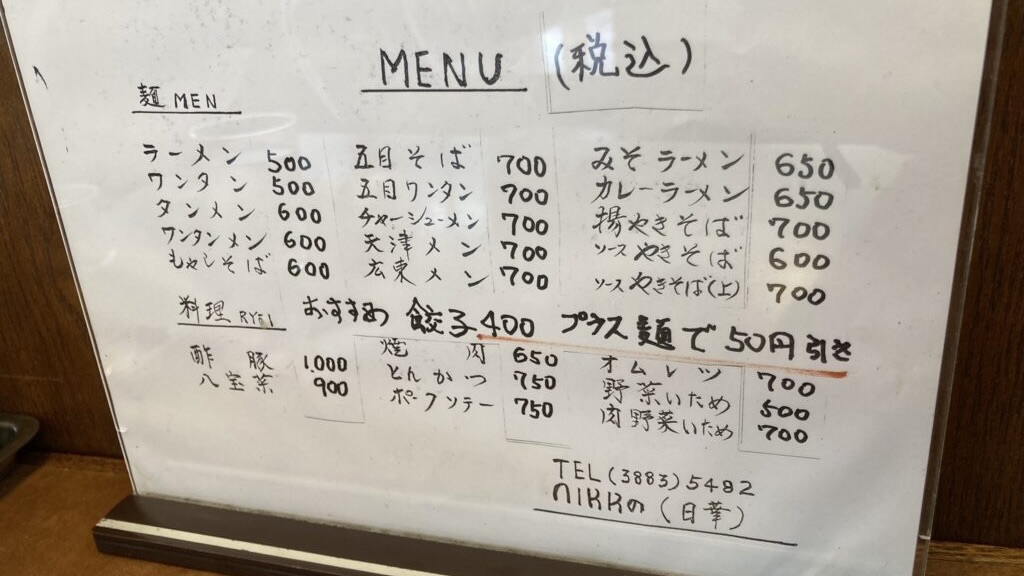 MENU (税込)
麺 MEN
ラーメン 500 五目そば 700 みそラーメン 650
ワンタン 500 五目ワンタン 700 カレーラーメン 650
タンメン 600 チャーシューメン 700 揚やきそば 700
ワンタンメン 600 天津メン 700 ソースやきそば 600
もやしそば 600 広東メン 700 ソースやきそば(上) 700
料理 RYEI おすすめ 餃子400 プラス麺で50円引き
酢豚 1,000 焼肉 650 オムレツ 700
八宝菜 900 とんかつ 750 野菜いため 500
ポークソテー 750 肉野菜いため 700
TEL(3883)5482
nikkの(日華)